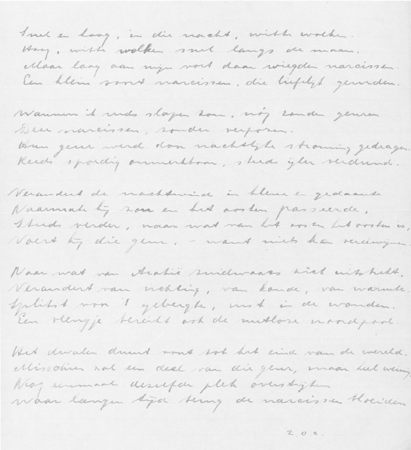 Snel en hoog, in die nacht, witte wolken.
Hoog, witte wolken snel langs de maan.
Maar laag aan mijn voet daar wiegden narcissen.
Een klein soort narcissen, die liefelijk geurden.
Wanneer ik reeds slapen zou, nóg zouden geuren
Deze narcissen, zonder verpozen.
Hun geur werd door nachtelijke strooming gedragen
Reeds spoedig onmerkbaar, steeds ijler verdund.
Verandert de nachtwind in kleur en gedaante
Naarmate hij zon en het oosten passeerde,
Steeds verder, naar wat van het oosten het oosten is,
Voert hij die geur, - want niets kan verdwijnen
Naar wat van Azatië zuidwaarts zich uitstrekt.
Verandert van richting, van koude, van warmte.
Splitst voor 't gebergte, rust in de wouden.
Een vleugje bereikt ook de nutlooze noordpool.
Het dwalen duurt voort tot het eind van de wereld.
Misschien zal een deel van die geur, maar heel weinig
Nog eenmaal dezelfde plek overstrijken
Waar langen tijd terug de narcissen bloeiden